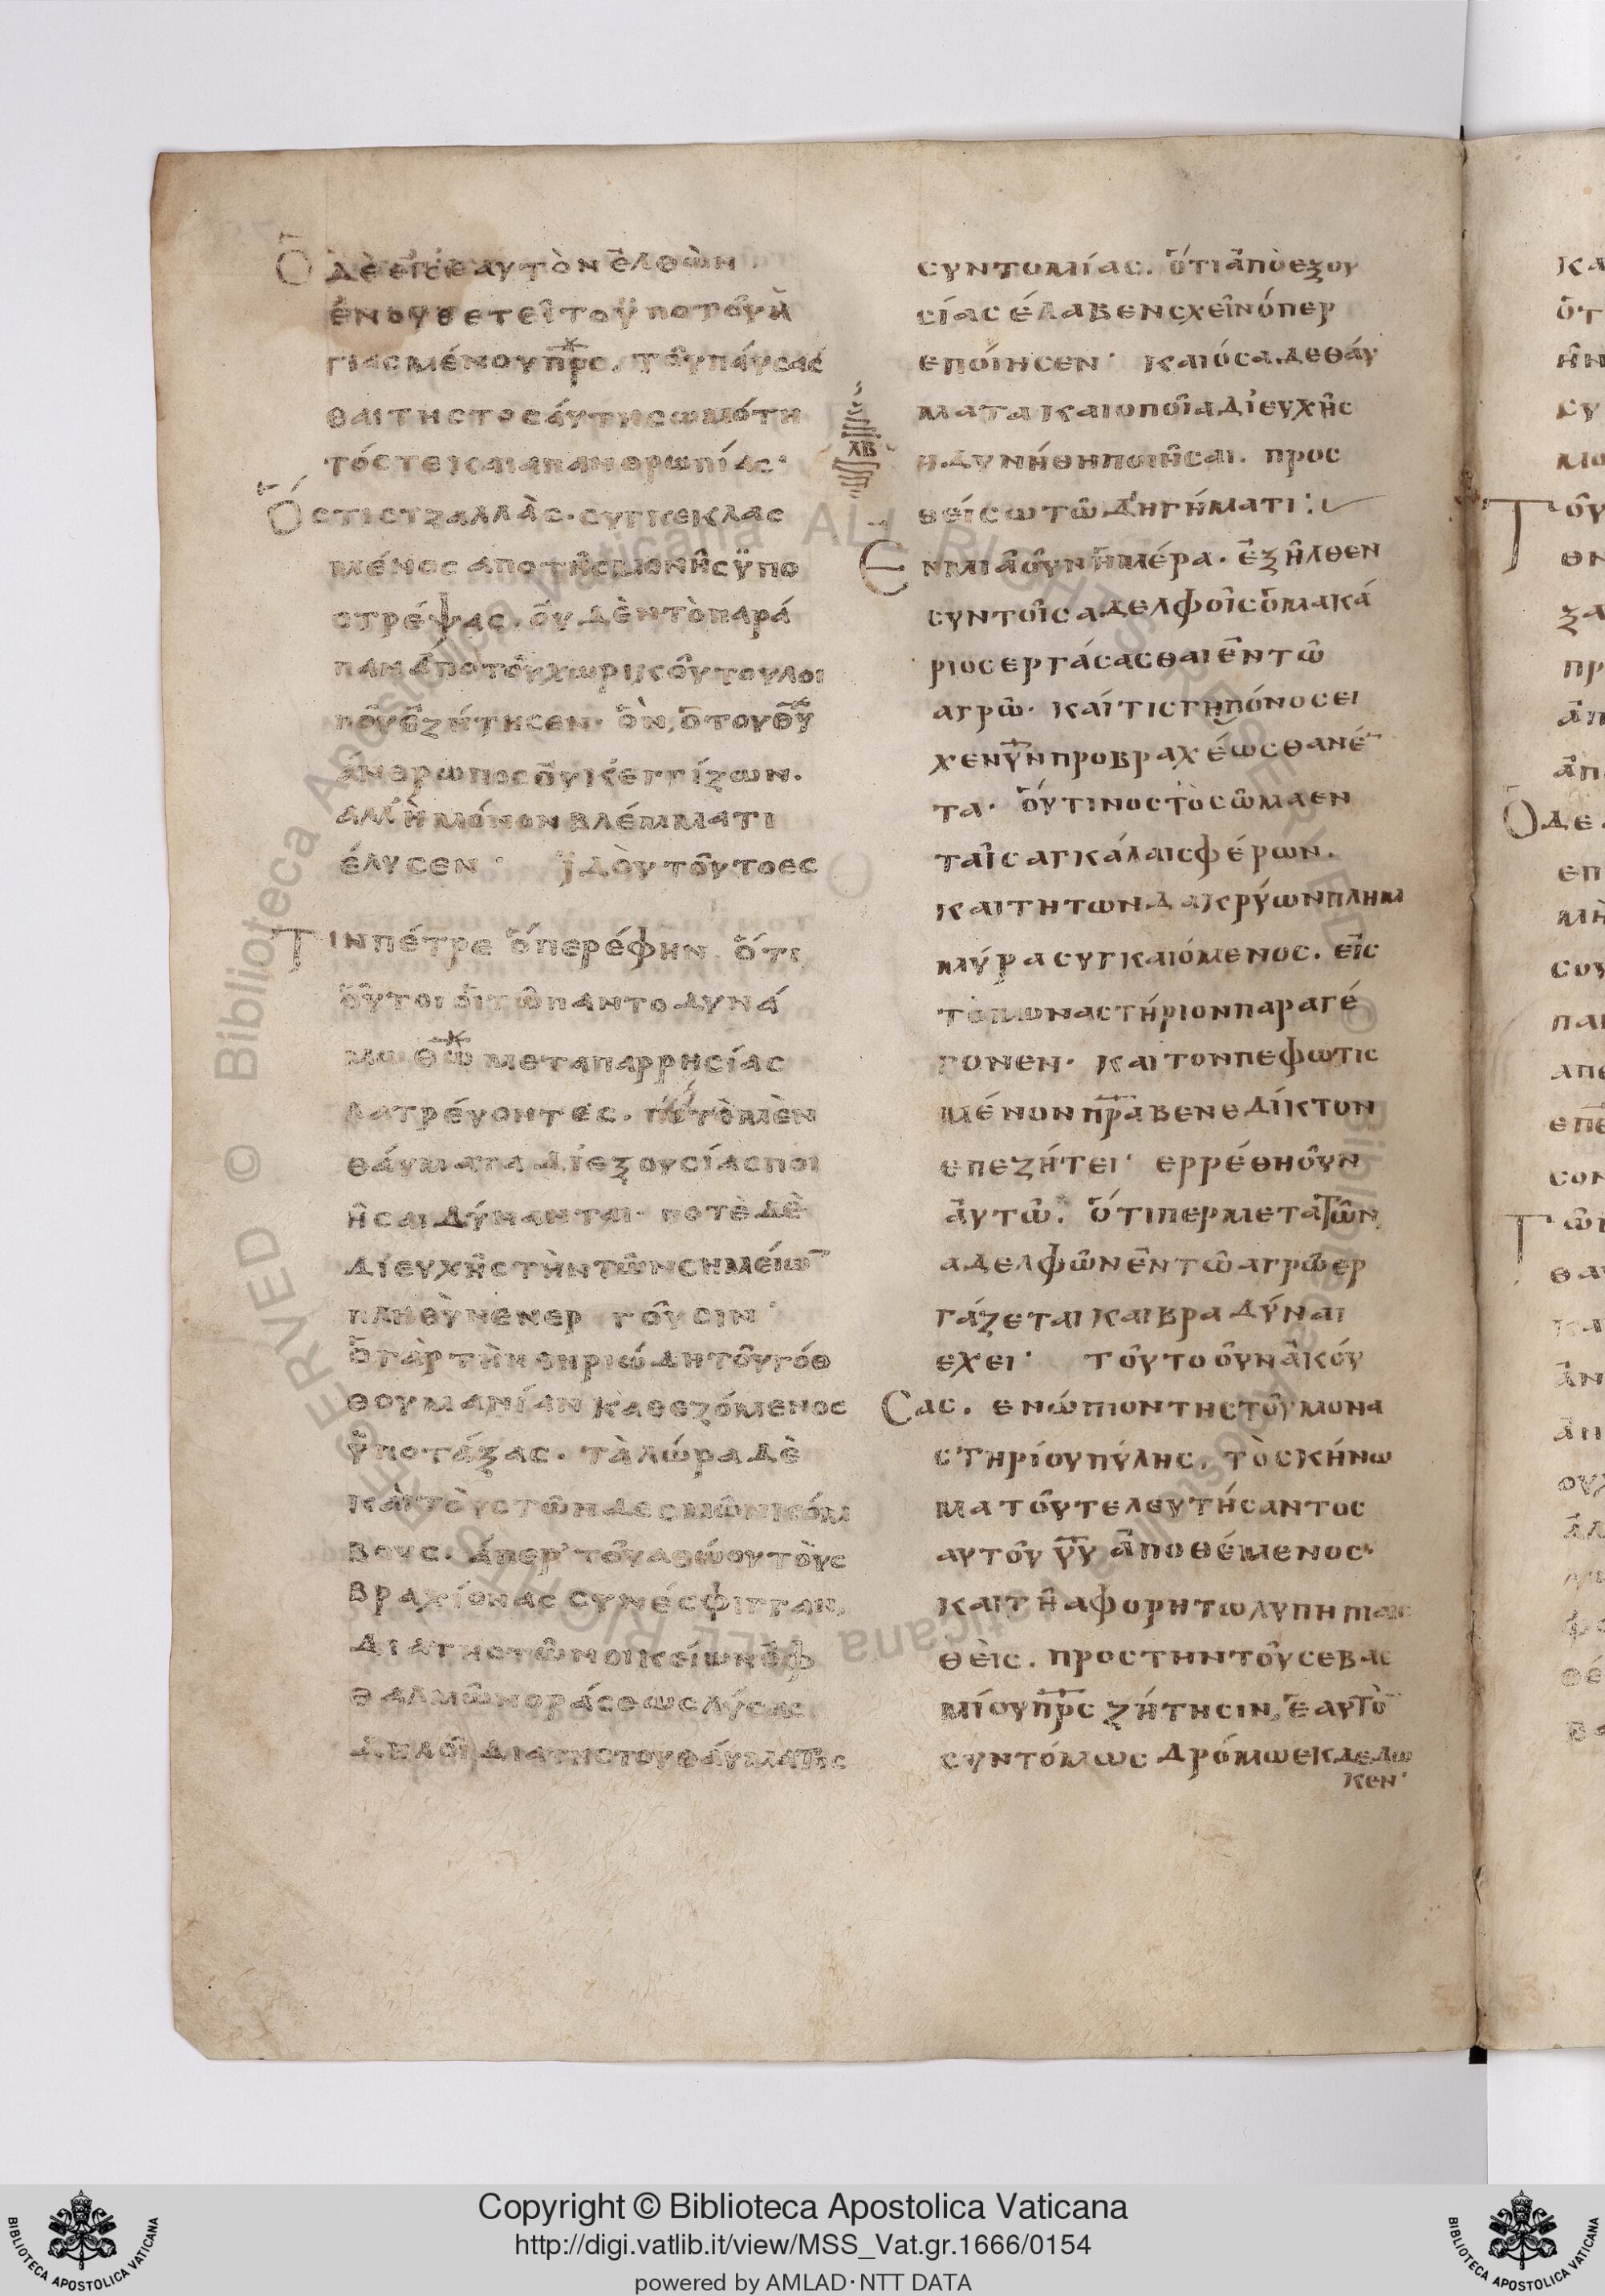 Ὁ δὲ εἰς ἑαυτὸν ἐλθὼν
ἐνουθετεῖτο ὑπὸ τοῦ ἡ
γιασμένου π̅ρ̅ς, τοῦ παύσας
θαι τῆς τοσαύτης ὠμότη
τός τε καὶ ἀπανθρωπίας·
Ὅστις τζαλλὰς· συγκεκλας
μένος ἀπὸ τῆς μονῆς ὑπο
στρέψας. οὐδὲν τὸ παρά
παν ἀπὸ τοῦ χωρικοῦ τοῦ λοι
ποῦ ἐζήτησεν· ὃν, ὁ τοῦ θ̅υ̅
ἄνθρωπος οὐκ ἐγγίζων.
ἀλλ' ἢ μόνον βλέμματι
ἔλυσεν· ἰδοὺ τοῦτο ἐς
Τιν πέτρε ὅπερ ἔφην ὅτι
οὗτοι οἱ τῷ παντοδυνά
μω θ̅ω̅ μετὰ παρρησίας
λατρέυοντες. ποτὲ μὲν
θάυματα δι' ἐξουσίας ποι
ῆσαι δύνανται· ποτὲ δὲ
δι' ευχῆς τὴν τῶν σημείω̅
πληθὺν ἐνεργοῦσιν·
Ὁ γὰρ τὴν θηριώδη τοῦ γότ
θου μανίαν καθεζόμενος
ὑποτάξας. τὰ λώρα δὲ
καὶ τοὺς τῶν δεσμῶν κόμ
βους. ἅπερ τοῦ ἀθώου τοὺς
βραχίονας συνέσφιγγαν,
διὰ τῆς τῶν οἰκείων ὀφ
θαλμῶν ὁράσεως λύσας
δηλοῖ διὰ τῆς τοῦ θάυματος
συντομίας. ὅτι ἀπὸ ἐξου
σίας ἔλαβεν σχεῖν ὅπερ
ἐποίησεν· καὶ ὅσα δὲ θάυ
ματα καὶ ὁποῖα δι' ευχῆς
ἠδυνήθη ποιῆσαι. προς
ΛΒ
θείσω τῷ διηγήματι:
Ἐν μιᾷ οὖν ἡμέρα. ἐξῆλθεν
σὺν τοῖς ἀδελφοῖς ὁ μακά
ριος εργάσασθαι ἐν τῷ
ἀγρῷ· καί τις γηπόνος εἶ
χεν υ̅ν̅ προ βραχέως θανέ̅
τα· οὕτινος τὸ σῶμα ἐν
ταῖς ἀγκάλαις φέρων.
καὶ τῇ τῶν δακρύων πλημ
μύρα συγκαιόμενος. εἰς
τὸ μοναστήριον παραγέ
γονεν· καὶ τὸν πεφωτις
μένον π̅ρ̅α βενεδίκτον
ἐπεζήτει· ἐρρέθη οὖν
αὐτῷ. ὅτιπερ μετὰ τῶν
ἀδελφῶν ἐν τῷ ἀγρῷ ερ
γάζεται καὶ βραδύναι
ἔχει· τοῦτο οὖν ἀκού
Σας. ἐνώπιον τῆς τοῦ μονα
στηρίου πύλης. τὸ σκήνω
μα τοῦ τελευτήσαντος
αὐτοῦ υ̅υ̅ ἀποθέμενος·
καὶ τῇ ἀφορήτω λύπη πιας
θεὶς. πρὸς τὴν τοῦ σεβας
μίου π̅ρ̅ς ζήτησιν, ἑαυτὸ̅
συντόμως δρόμω ἐκδεδω
κεν·
Copyright © Biblioteca Apostolica Vaticana
http://digi.vatlib.it/view/MSS_Vat.gr.1666/0154
powered by AMLAD·NTT DATA